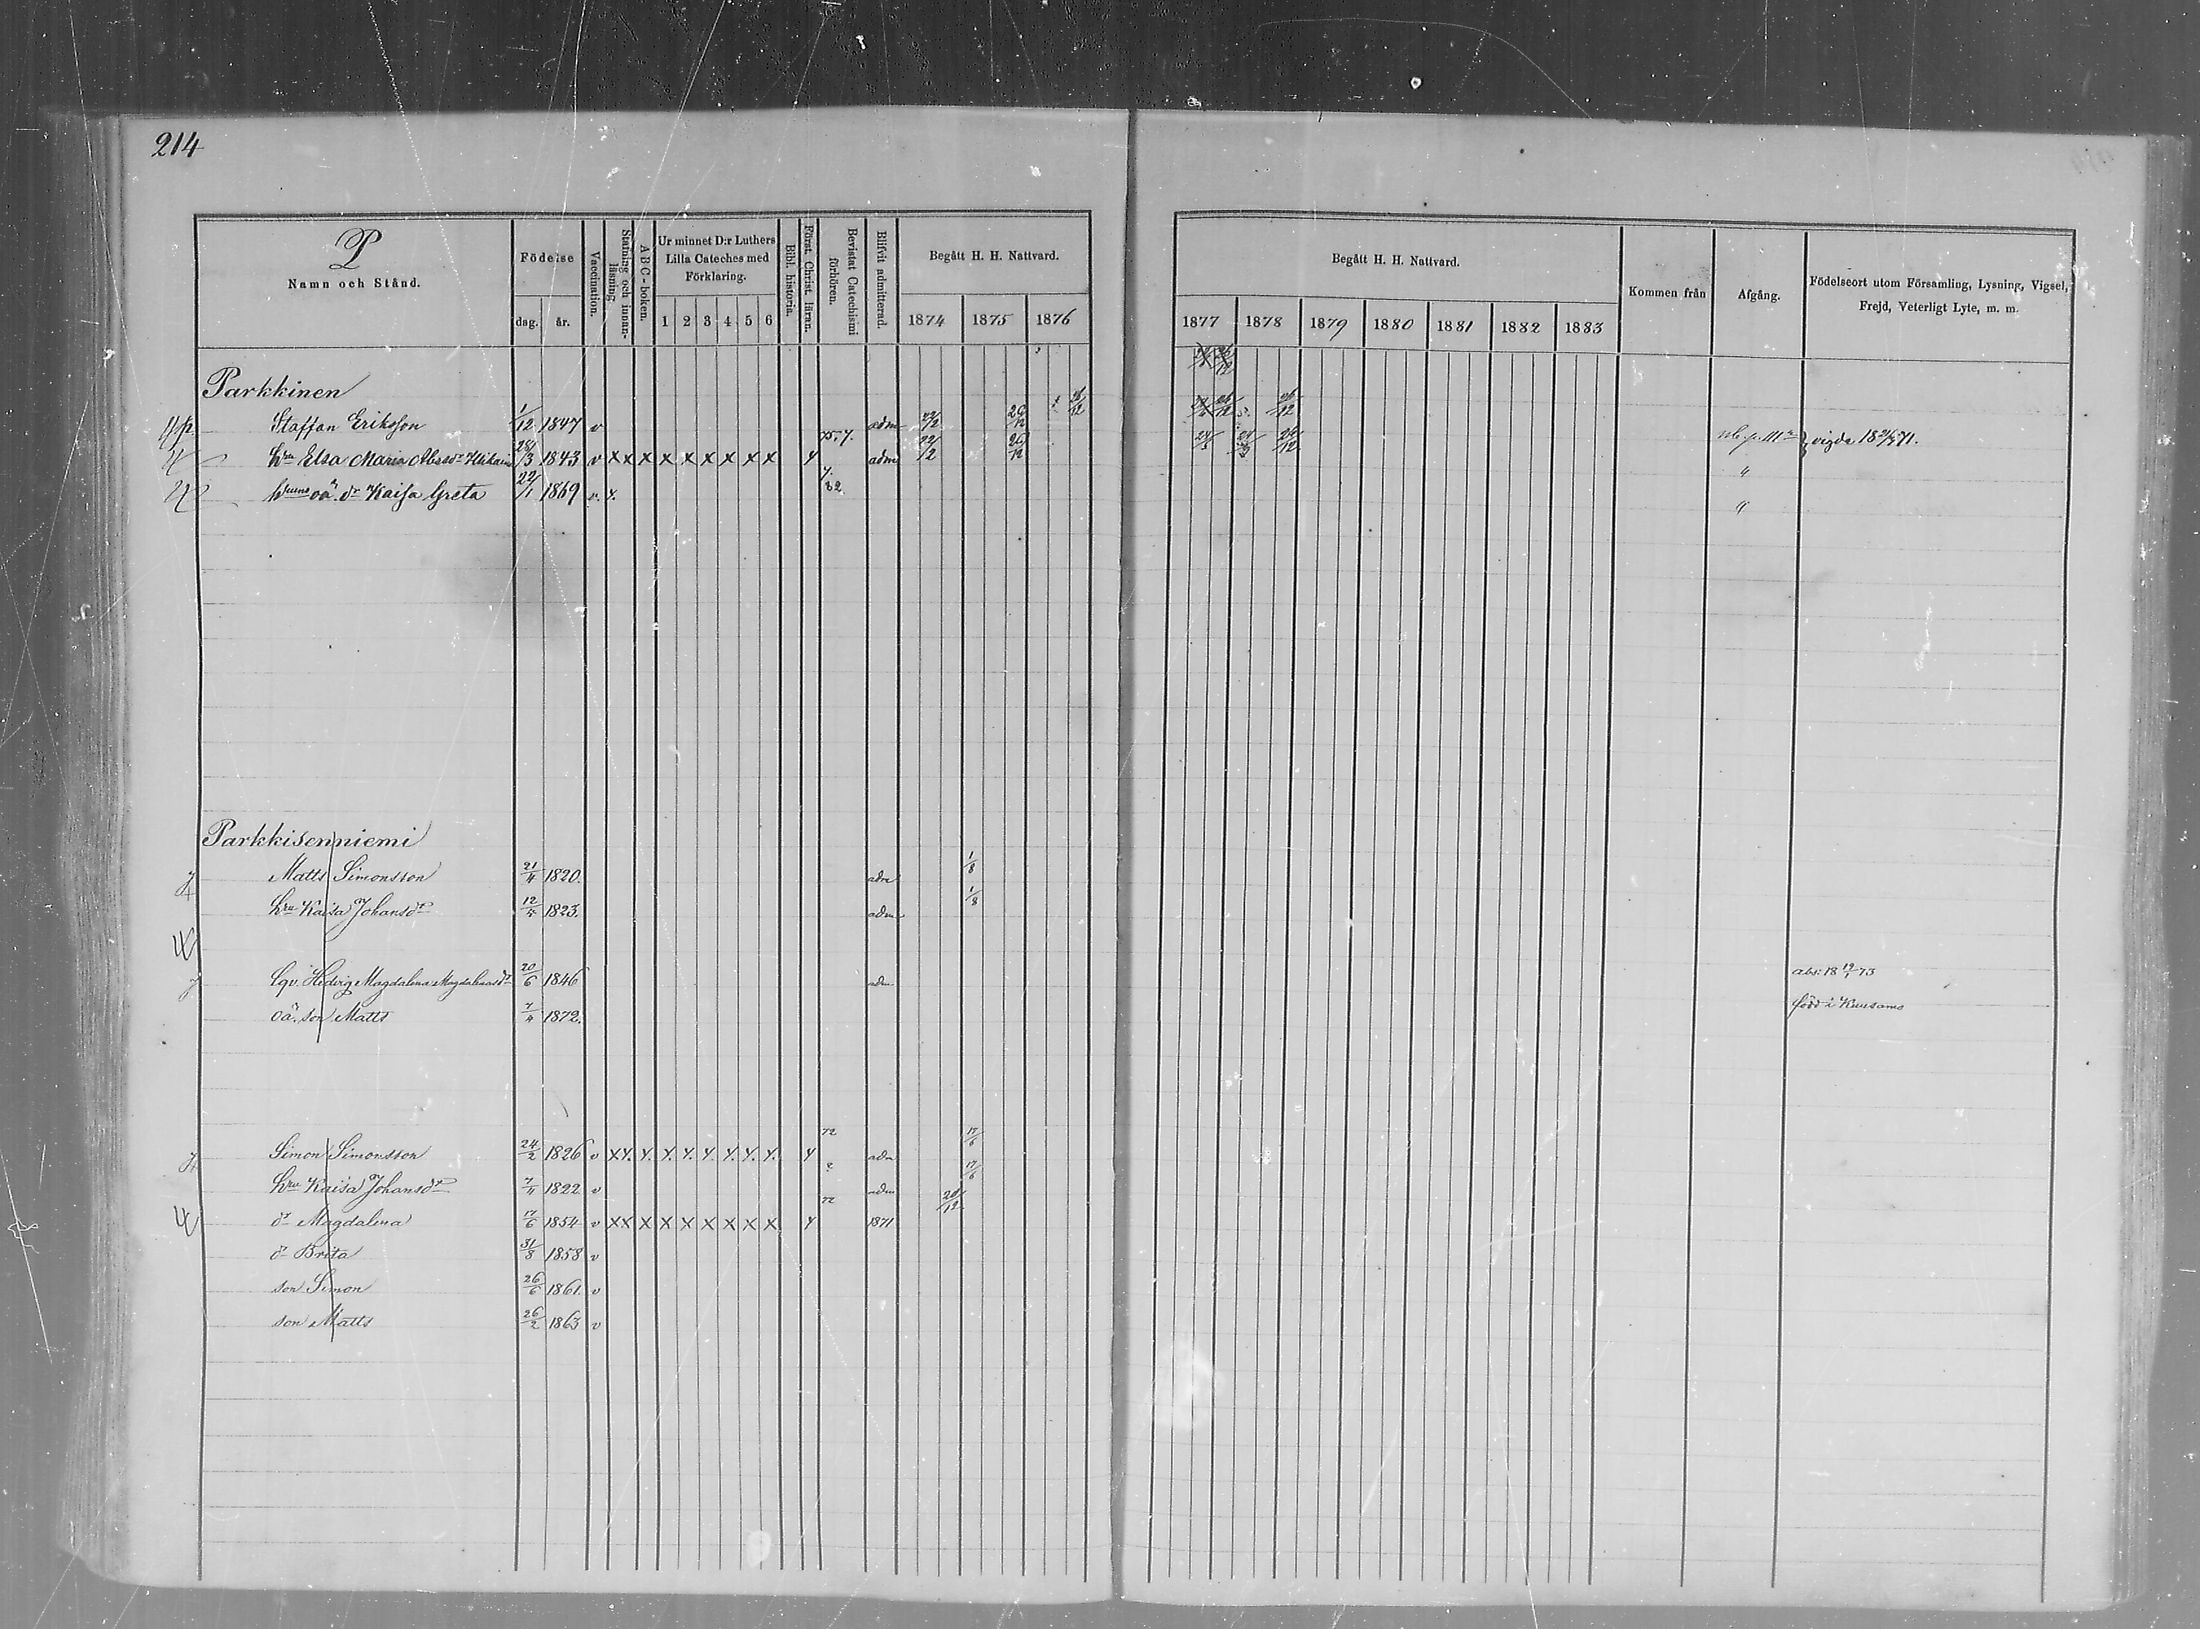 214
P
Namn och Stånd.
Födelse
dag. år.
Vaccination.
Stafning och innanläsning.
ABC-boken.
Ur minnet D:r Luthers Lilla Cateches med Förklaring.
1 2 3 4 5 6
Bibl. historia.
Först. Christ. läran.
Bevistat Catechismi förhören.
Blifvit admitterad.
Begått H. H. Nattvard.
1874 1875 1876
Begått H. H. Nattvard.
1877 1878 1879 1880 1881 1882 1883
Kommen från
Afgång.
Födelseort utom Församling, Lysning, Vigsel, Frejd, Veterligt Lyte, m. m.
Parkkinen
Staffan Eriksson 1/12 1847 v adm 22/2 26/12
hru Elsa Maria Absdr 28/3 1843 v x x x x x x x x x adm 22/2 26/12 vigde 1871.
oä. dr Kaisa Greta 22/1 1869 v.
Parkkisenniemi
Matts Simonsson 21/4 1820. adm 1/8
hru Kaisa Johansdr 12/5 1823. adm 1/8
Hedvig Magdalena Magdalenasdr 20/6 1846 adm abs: 18 19/1 73
oä. son Matts 7/4 1872. född i Kuusamo
Simon Simonsson 24/2 1826 v 72 adm 17/6
hru Kaisa Johansdr 7/4 1822 v adm 17/6
dr Magdalena 17/6 1854 v x x x x x x x x x 72 1871 20/12
dr Brita 31/8 1858 v
son Simon 26/6 1861. v
son Matts 26/2 1863 v